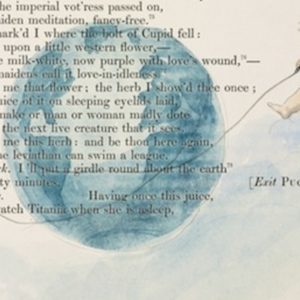 he imperial vot'ress passed on,
aiden meditation, fancy-free.
ark'd I where the bolt of Cupid fell :
upon a little western flower,—
e milk-white, now purple with love's wound,—
maidens call it love-in-idleness
me that flower ; the herb I show'd thee once ;
uice of it on sleeping eyelids laid,
make or man or woman madly dote
the next live creature that it sees.
me this herb : and be thou here again,
he leviathan can swim a league.
k. I 'll put a girdle round about the earth
ty minutes. [Exit PUC
Having once this juice,
atch Titania when she is asleep,